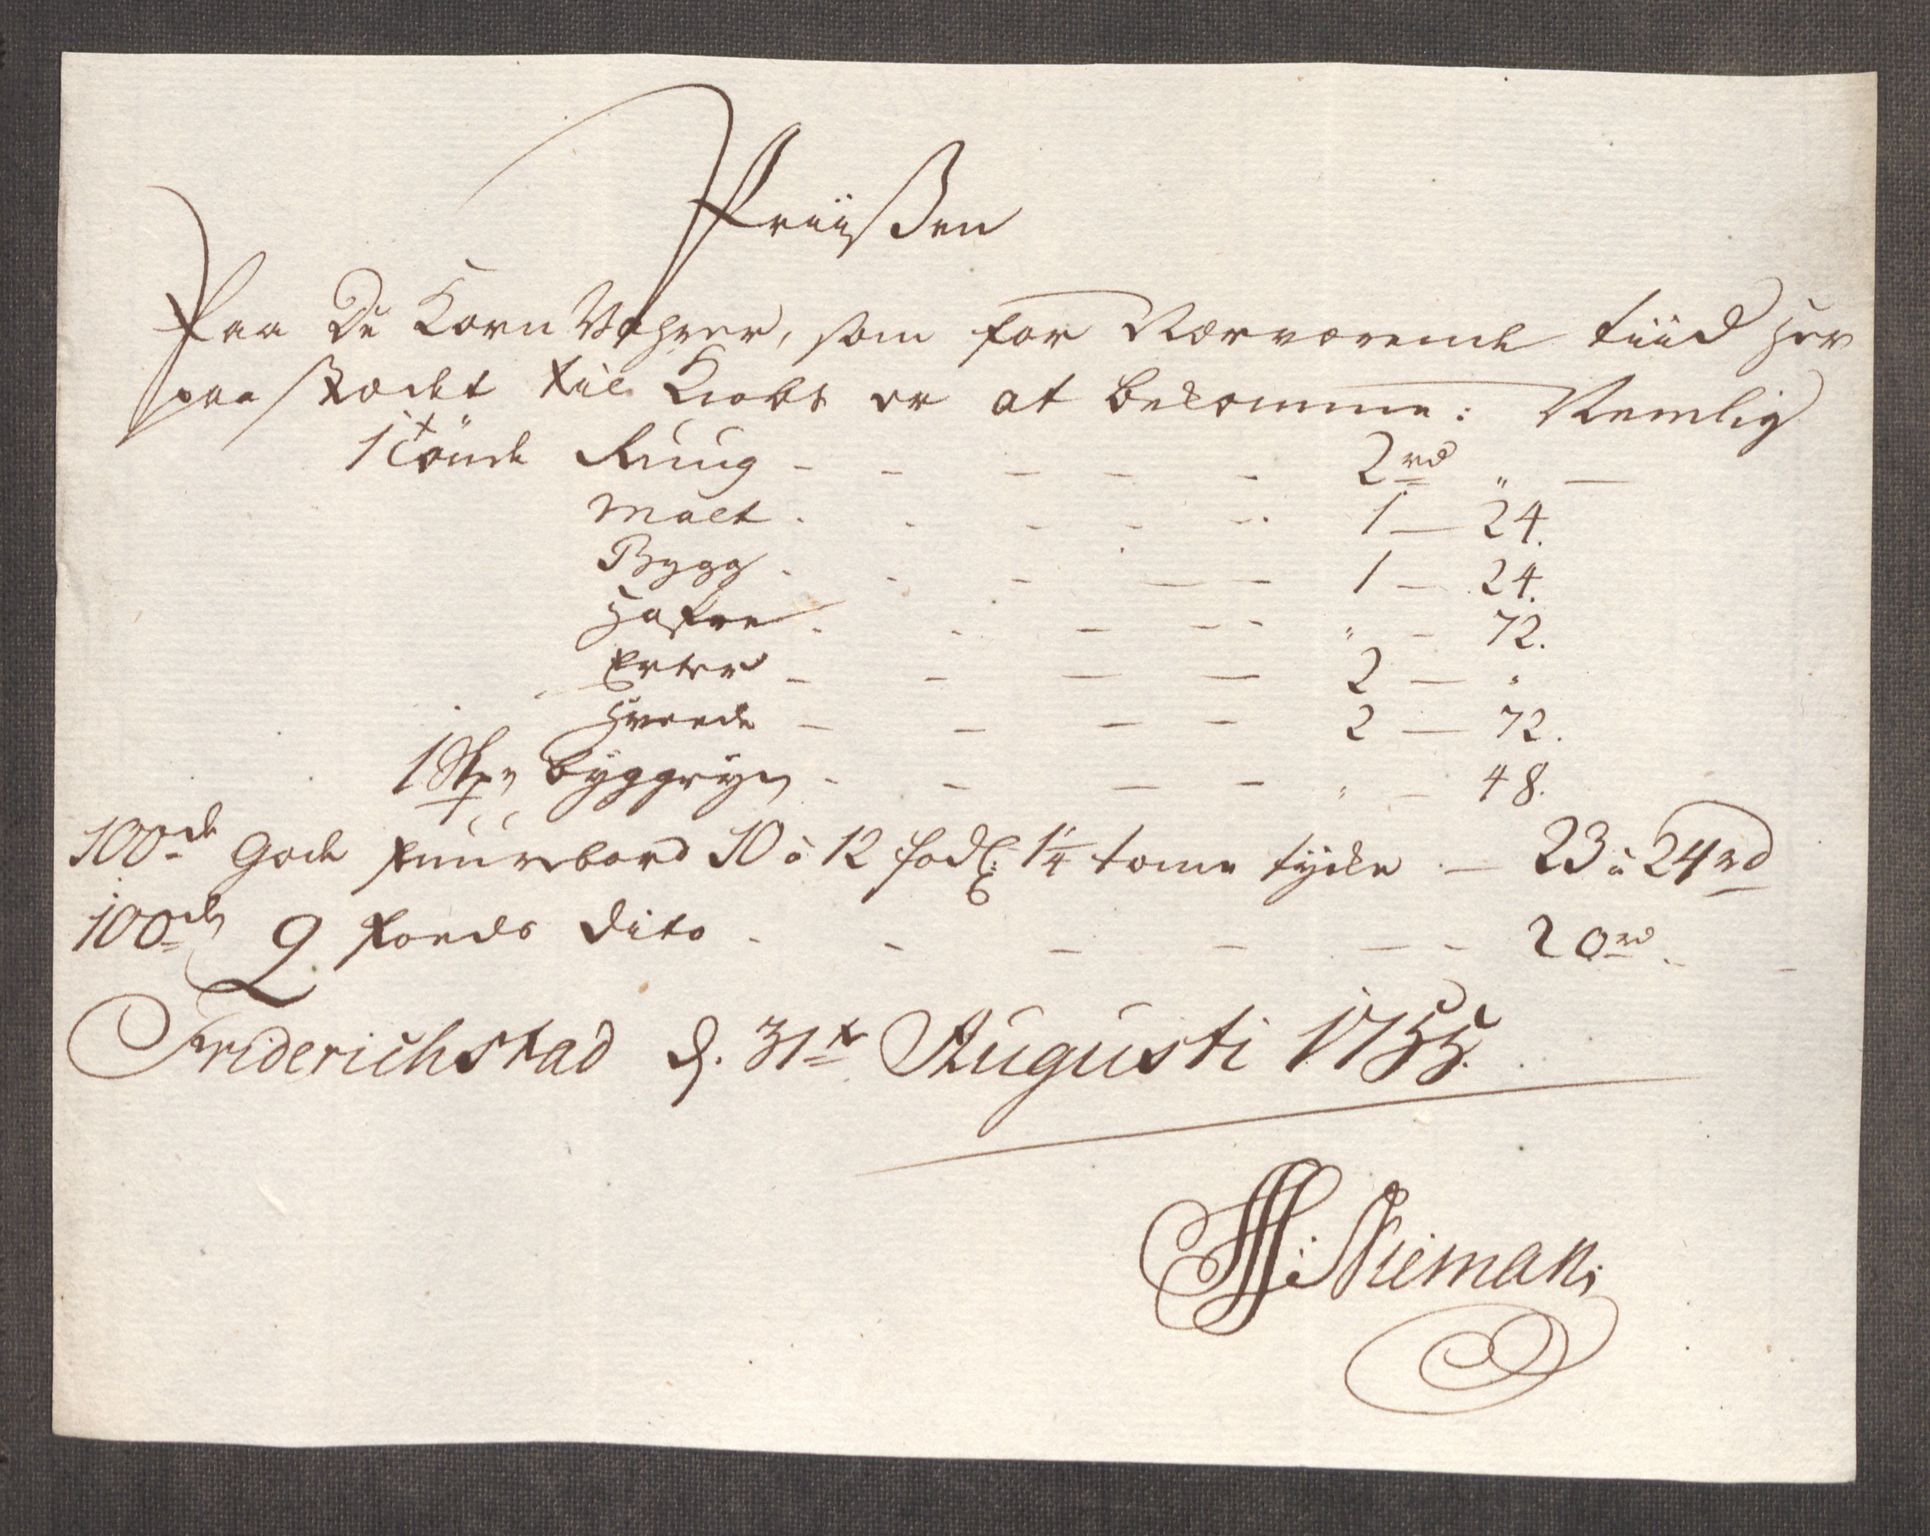 Priisen
Paa De Korn Vahrer, som for Nærværende tiid her
paa stædet til Kiøbs er at bekomme: Nemlig
1 Tönde Ruug - - - - - 2 rd " -
Malt - - - - - 1 - 24.
Bygg - - - - - 1 - 24.
Hafre - - - - - " - 72.
Erter - - - - 2 - "
Hvede - - - - 2 - 72.
1 Skp Byggryn - - - - " - 48.
100de gode fuurebord 10 a 12 fod 1 1/4 tome tycke - 23 a 24 rd
100de 9 foeds dito - - - - - - 20 rd.
Friderichstad d. 31te Augusti 1755.
Nieman